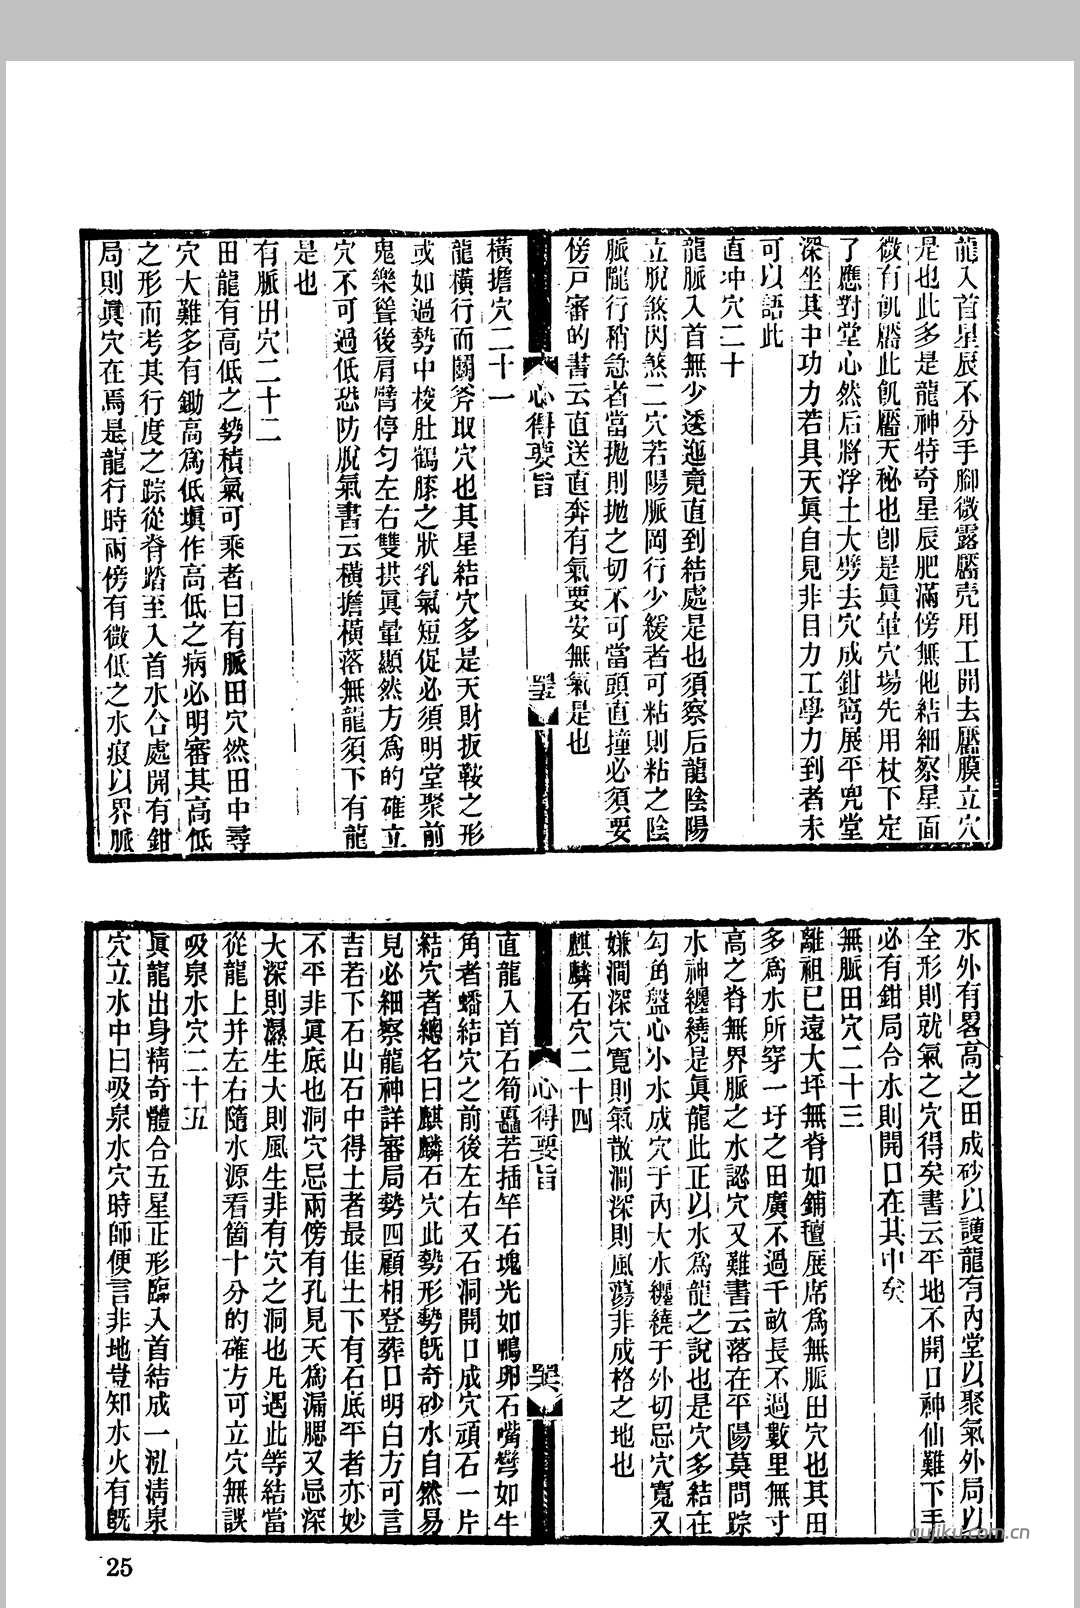 龍入首星辰不分手腳微露靨壳用工開去靨膜立穴
是也此多是龍神特奇星辰肥滿傍無他結細察星面
微有飢靨此飢靨天秘也卽是眞暈穴場先用杖下定
了應對堂心然后將浮土大劈去穴成鉗窩展平兜堂
深坐其中功力若具天眞自見非目力工學力到者未
可以語此
直冲穴二十
龍脈入首無少逶迤竟直到結處是也須察后龍陰陽
立脫煞閃煞二穴若陽脈岡行少緩者可粘則粘之陰
脈隴行稍急者當拋則拋之切不可當頭直撞必須要
傍戸審的書云直送直奔有氣要安無氣是也
心得要旨
橫擔穴二十一
龍橫行而鬬斧取穴也其星結穴多是天財扳鞍之形
或如過勢中梭肚鶴膝之狀乳氣短促必須明堂聚前
鬼樂聳後肩臂停匀左右雙拱眞暈顯然方爲的確立
穴不可過低恐防脫氣書云橫擔橫落無龍須下有龍
是也
有脈田穴二十二
田龍有高低之勢積氣可乘者曰有脈田穴然田中尋
穴大難多有鋤高爲低塡作高低之病必明審其高低
之形而考其行度之踪從脊踏至入首水合處開有鉗
局則眞穴在焉是龍行時兩傍有微低之水痕以界脈
水外有畧高之田成砂以護龍有內堂以聚氣外局以
全形則就氣之穴得矣書云平地不開口神仙難下手
必有鉗局合水則開口在其中矣
無脈田穴二十三
離祖已遠大坪無脊如鋪氊展席爲無脈田穴也其田
多爲水所穿一圩之田廣不過千畝長不過數里無寸
高之脊無界脈之水認穴又難書云落在平陽莫問踪
水神纏繞是眞龍此正以水爲龍之說也是穴多結在
勾角盤心小水成穴于內大水纏繞于外切忌穴寬又
嫌澗深穴寬則氣散澗深則風蕩非成格之地也
麒麟石穴二十四
心得要旨
直龍入首石筍矗若插竿石塊光如鴨卵石嘴彎如牛
角者蟠結穴之前後左右又石洞開口成穴頑石一片
結穴者總名曰麒麟石穴此勢形勢旣奇砂水自然易
見必細察龍神詳審局勢四顧相登葬口明白方可言
吉若下石山石中得土者最佳土下有石底平者亦妙
不平非眞底也洞穴忌兩傍有孔見天爲漏腮又忌深
大深則濕生大則風生非有穴之洞也凡遇此等結當
從龍上并左右隨水源看箇十分的確方可立穴無誤
吸泉水穴二十五
眞龍出身精奇體合五星正形臨入首結成一泓淸泉
穴立水中曰吸泉水穴時師便言非地豈知水火有旣
25
gujiku.com.cn